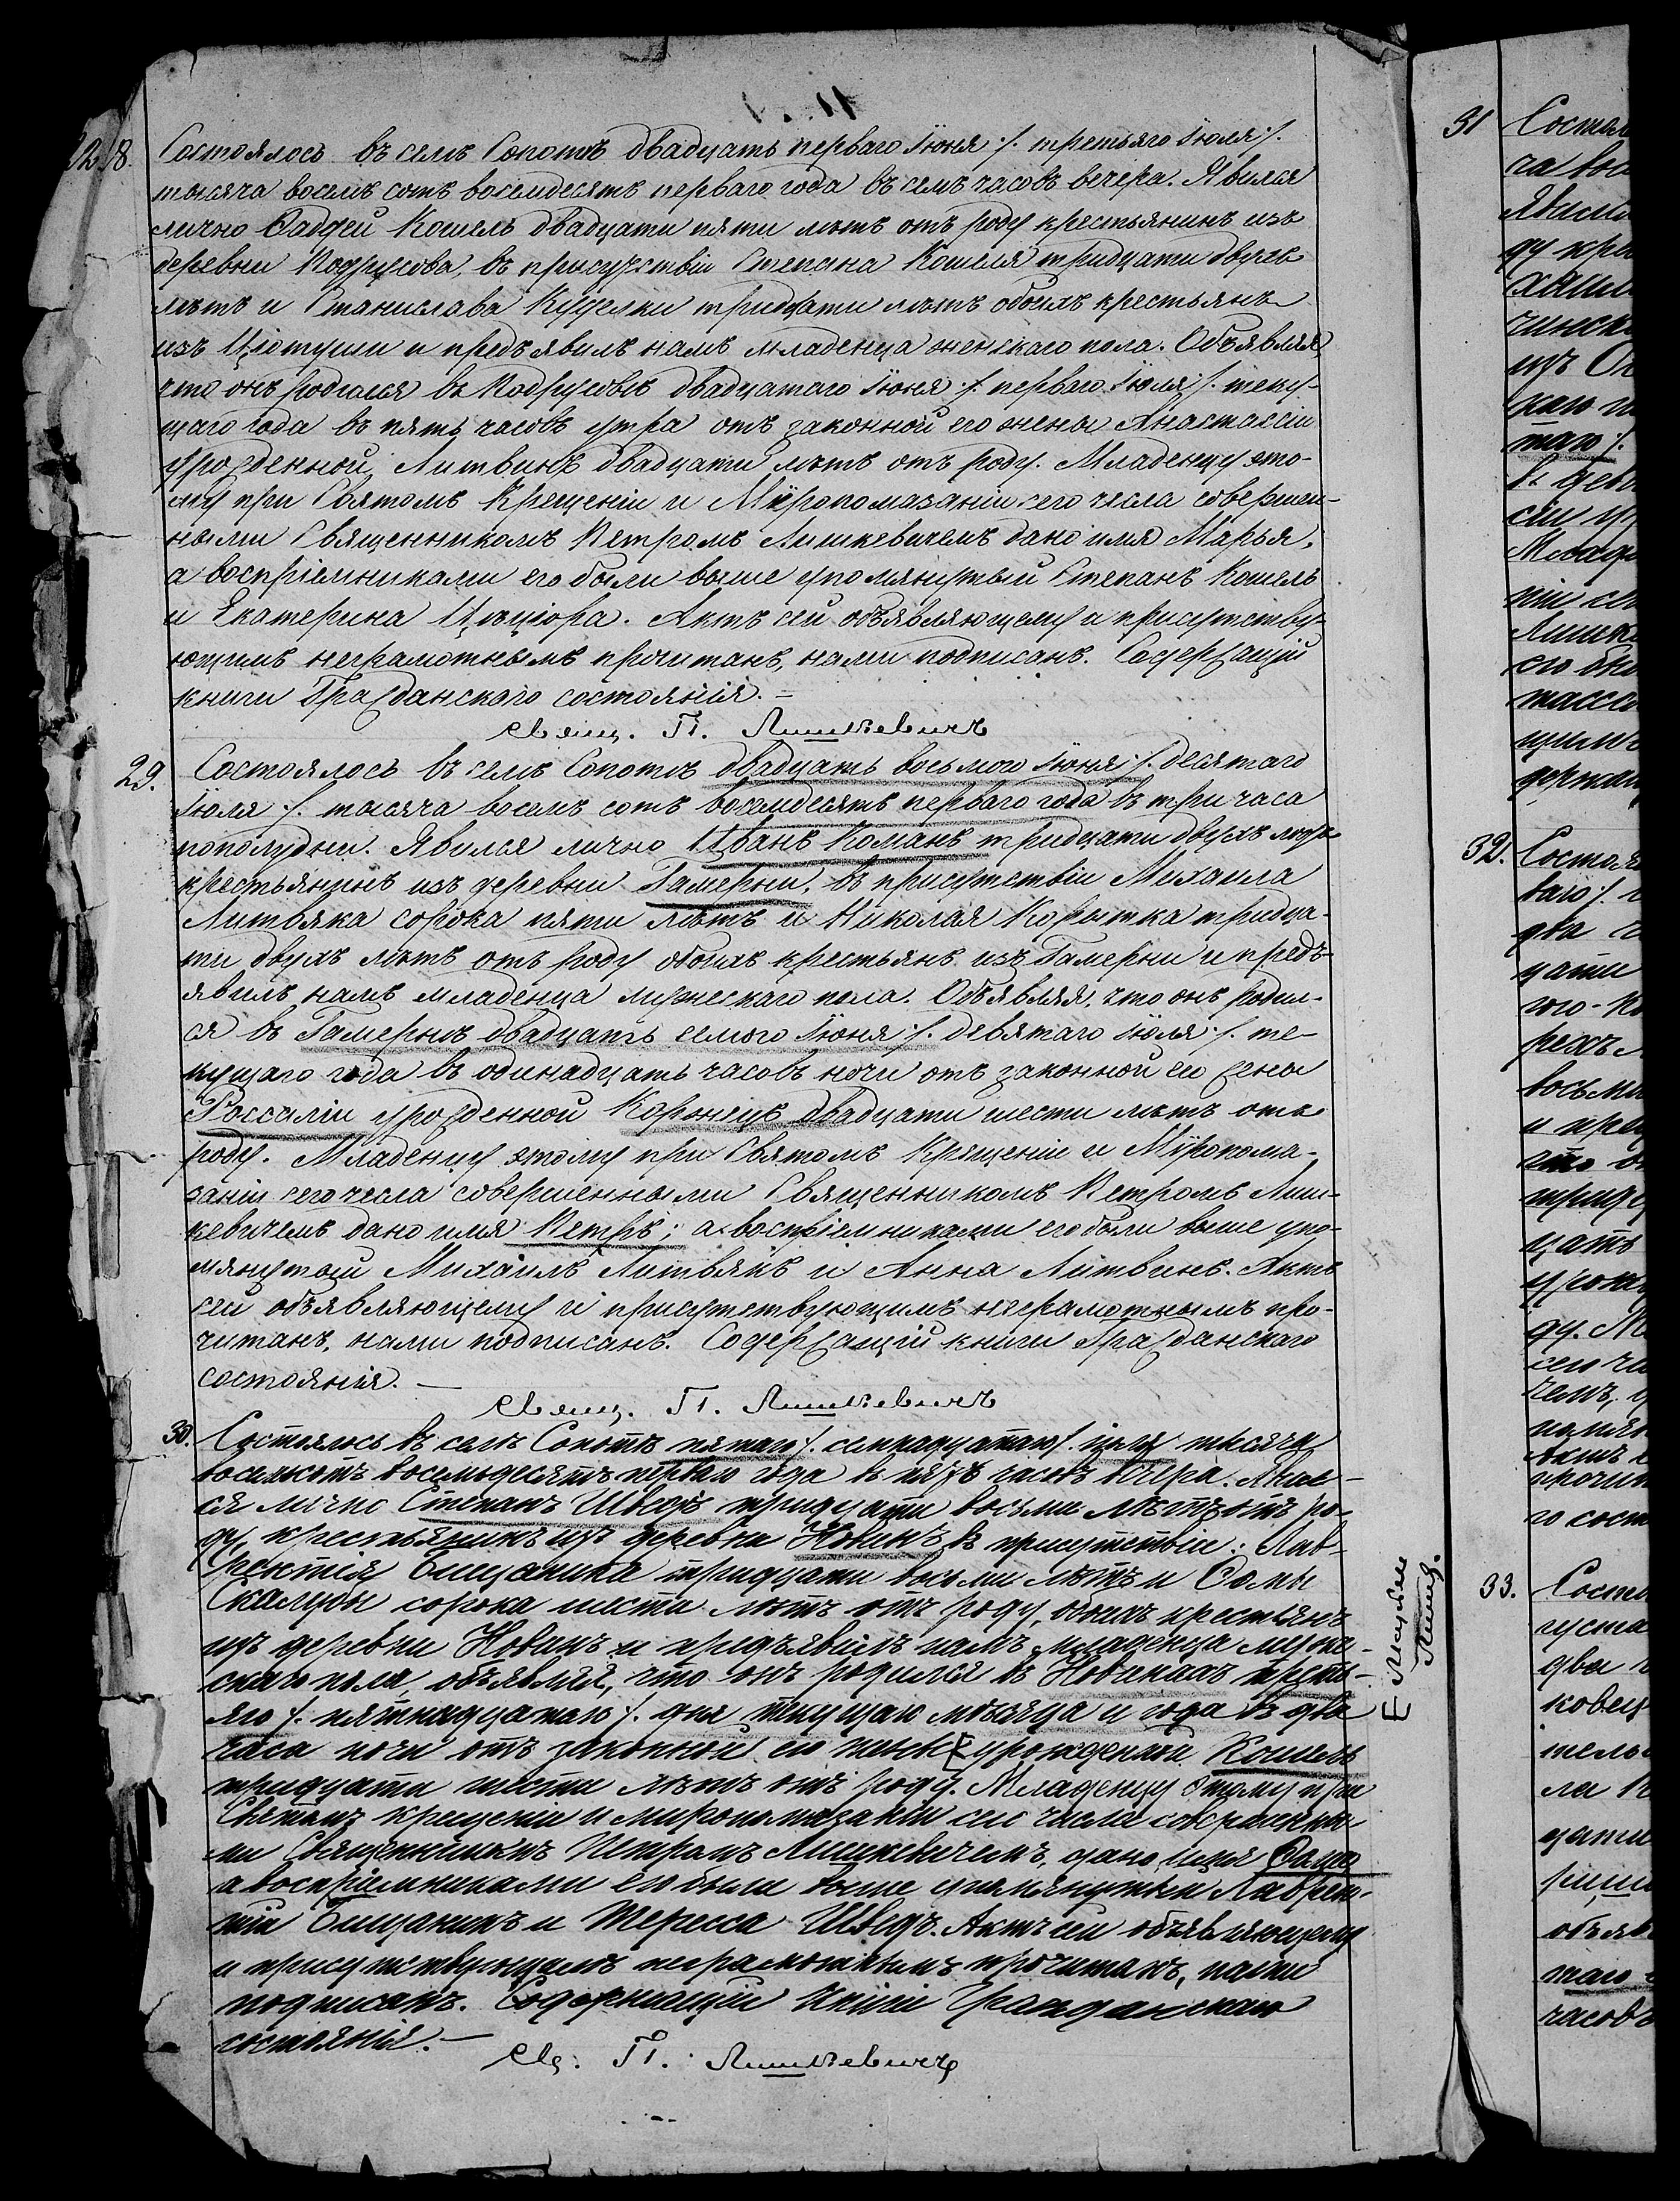 28. Состоялось въ селѣ Сопотѣ двадцать перваго Іюня ./. третьяго Іюля ./.
тысяча восемь сотъ восемдесятъ перваго года въ семь часовъ вечера. Явился
лично Фаддей Кошель двадцати пяти лѣтъ отъ роду крестьянинъ изъ
деревни Подрусова, въ присутствіи Степана Кошеля тридцати двухъ
лѣтъ и Станислава Куделки тридцати лѣтъ обоихъ крестьянъ
изъ Цѣотуши и предъявилъ намъ младенца женскаго пола. Объявляя,
что онъ родился въ Подрусовѣ двадцатаго Іюня ./. перваго Іюля ./. теку-
щаго года въ пять часовъ утра отъ законной его жены Анастасіи
урожденной Литвинъ двадцати лѣтъ отъ роду. Младенцу это-
му при Святомъ Крещеніи и Мѵропомазаніи сего числа совершен-
ными Священникомъ Петромъ Лишкевичемъ дано имя Марья,
а воспріемниками его были выше упомянутый Степанъ Кошель
и Екатерина. Актъ сей объявляющему и присутству-
ющимъ неграмотнымъ прочитанъ, нами подписанъ. Содержащій
книги Гражданскаго состоянія. –
Свящ. П. Лишкевичъ
29. Состоялось въ селѣ Сопотѣ двадцать восьмого Іюня ./. десятаго
Іюля ./. тысяча восемь сотъ восемдесятъ перваго года въ три часа
пополудни. Явился лично Иванъ Команъ тридцати двухъ лѣтъ
крестьянинъ изъ деревни Гамерни, въ присутствіи Михаила
Литвяка сорока пяти лѣтъ и Николая Корытка тридца-
ти двухъ лѣтъ отъ роду обоихъ крестьянъ изъ Гамерни и предъ-
явилъ намъ младенца мужескаго пола. Объявляя, что онъ родил-
ся въ Гамернѣ двадцать семого Іюня ./. девятаго Іюля ./. те-
кущаго года въ одинадцать часовъ ночи отъ законной его жены
Россаліи урожденной Коронецъ двадцати шести лѣтъ отъ
роду. Младенцу этому при Святомъ Крещеніи и Мѵропома-
заніи сего числа совершенными Священникомъ Петромъ Лиш-
кевичемъ дано имя Петръ; а воспріемниками его были выше упо-
мянутый Михаилъ Литвякъ и Анна Литвинъ. Актъ
сей объявляющему и присутствующимъ неграмотнымъ про-
читанъ, нами подписанъ. Содержащій книги Гражданскаго
состоянія. –
Свящ. П. Лишкевичъ
30. Состоялось въ селѣ Сопотѣ пятаго ./. семнадцатаго ./. іюля тысяча
восемьсотъ восемьдесятъ перваго года въ пять часовъ вечера. Явил-
ся лично Степанъ Шведъ тридцати восьми лѣтъ отъ ро-
ду, крестьянинъ изъ деревни Новинъ въ присутствіи: Лав-
рентія Бищаника тридцати восьми лѣтъ и Ѳомы
Скалубы сорока шести лѣтъ отъ роду, обоихъ крестьянъ
изъ деревни Новинъ и предъявилъ намъ младенца муже-
скаго пола, объявляя, что онъ родился въ Новинахъ треть-
яго ./. пятнадцатаго ./. дня текущаго мѣсяца и года въ два
часа ночи отъ законной его жены урожденной Кошель
тридцати шести лѣтъ отъ роду. Младенцу этому при
Святомъ крещеніи и миропомазаніи сего числа совершенны-
ми Священникомъ Петромъ Лишкевичемъ, дано имя Ѳома
а воспріемниками его были выше упомянутый Лаврен-
тій Бищаникъ и Тересса Шведъ. Актъ сей объявляющему
и присутствующимъ неграмотнымъ прочитанъ, нами
подписанъ. Содержащій книги Гражданскаго
состоянія. –
Св. П. Лишкевичъ
31
Состоя
32. Состоя
ваго ./.
два
цати
рехъ
восьми
и пред
что о
33. Состоя
густа
два
ковец
часов